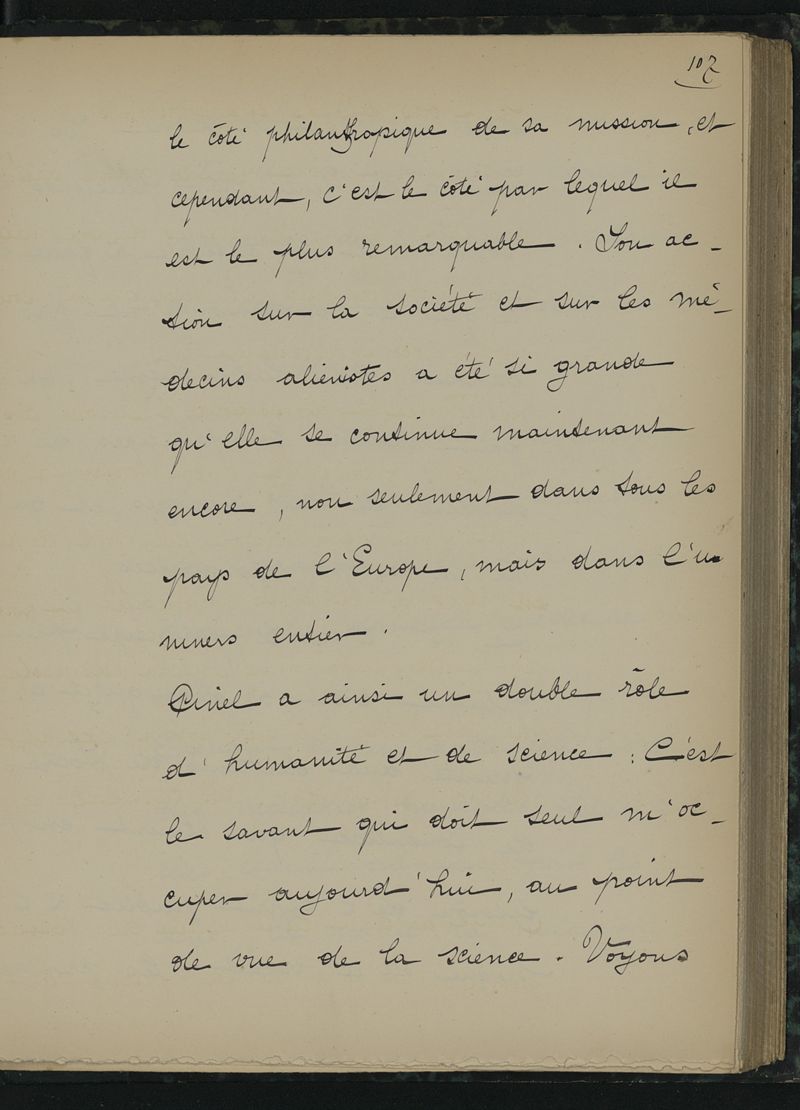 107
le côté philanthropique de sa mission, et
cependant, c'est le côté par lequel il
est le plus remarquable. Son ac-
tion sur la société et sur les mé-
decins aliénistes a été si grande
qu'elle se continue maintenant
encore, non seulement dans tous les
pays de l'Europe, mais dans l'u-
nivers entier.
Pinel a ainsi un double rôle
d'humanité et de science : C'est
le savant qui doit seul m'oc-
cuper aujourd'hui, au point
de vue de la science. Voyons